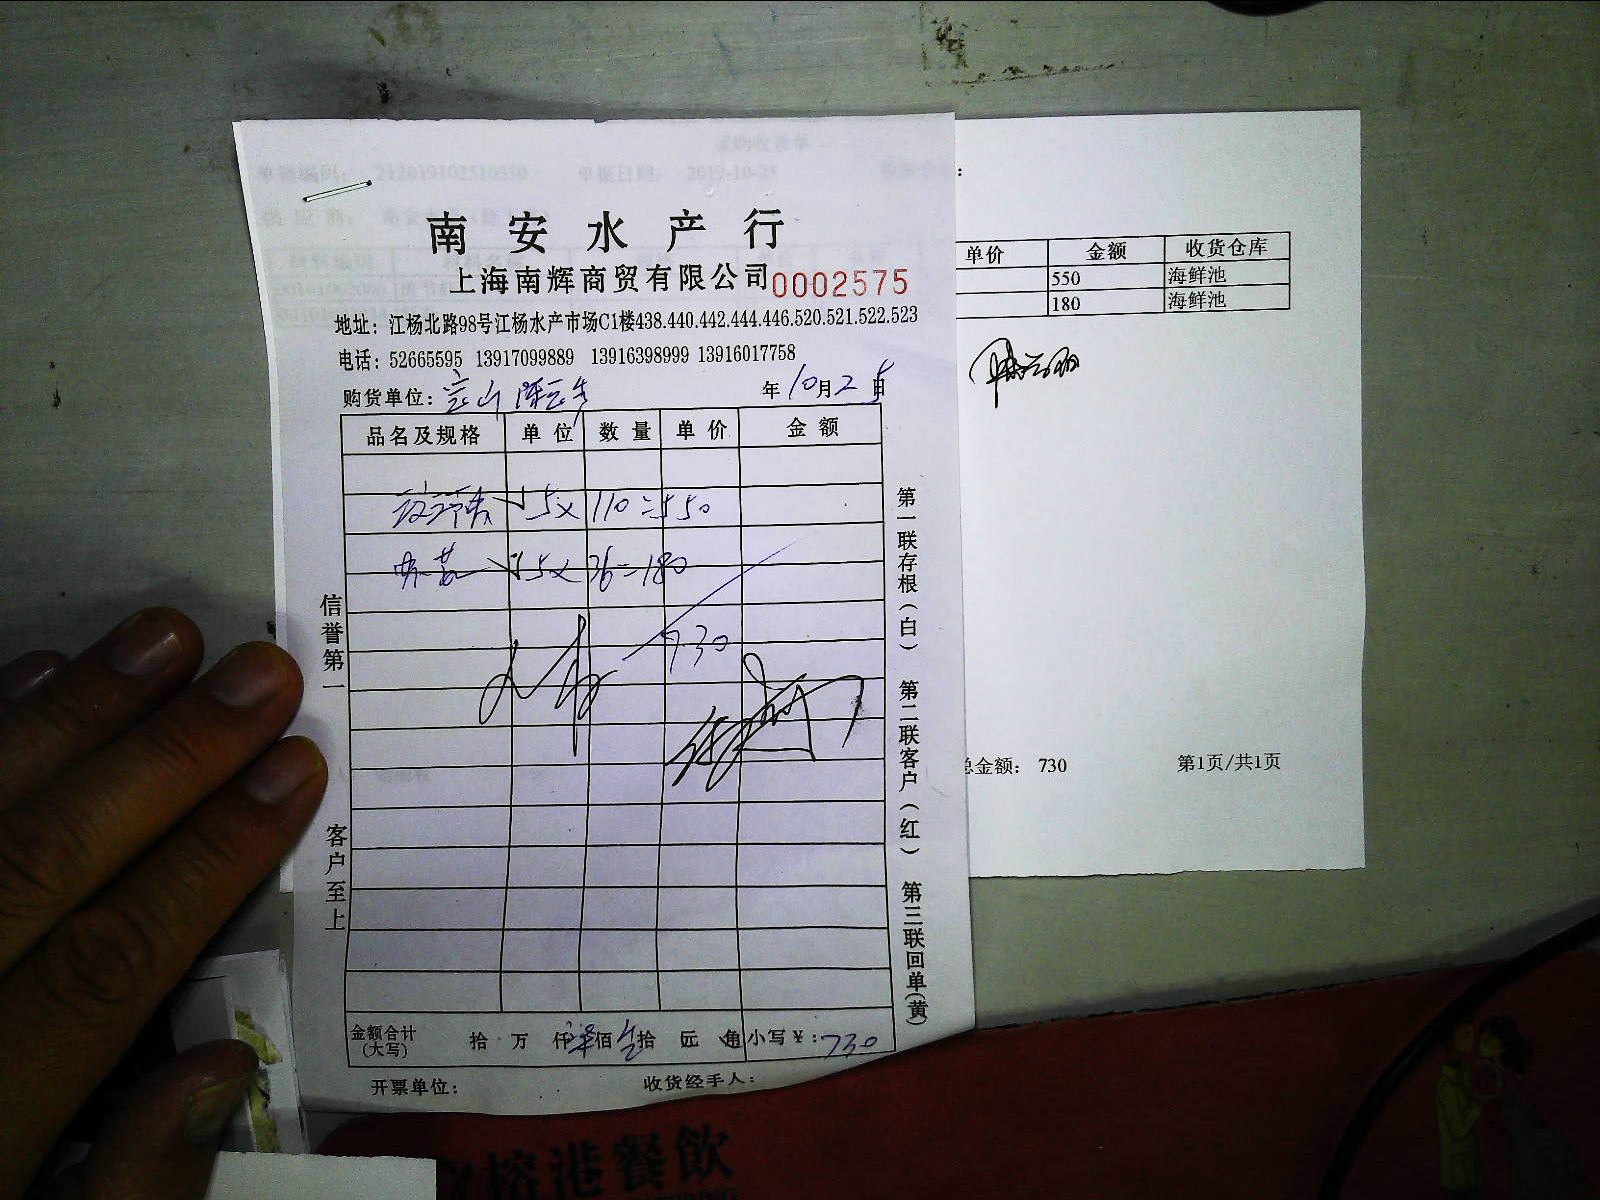 采购收货单
单据编码： 212019102510350 单据日期： 2019-10-25
供 应 商：
南安水产行
上海南辉商贸有限公司 0002575
地址：江杨北路98号江杨水产市场C1楼438.440.442.444.446.520.521.522.523
电话：52665595 13917099889 13916398999 13916017758
购货单位：宝山 年 10 月 25 日
品名及规格 单位 数量 单价 金额
5x 110 = 550
5x 36 = 180
730
金额合计(大写) 拾 万 仟 佰 拾 元 角 小写￥：730
开票单位： 收货经手人：
信誉第一 客户至上
第一联存根(白) 第二联客户(红) 第三联回单(黄)
单价 金额 收货仓库
550 海鲜池
180 海鲜池
总金额： 730 第1页/共1页
榕港餐飲